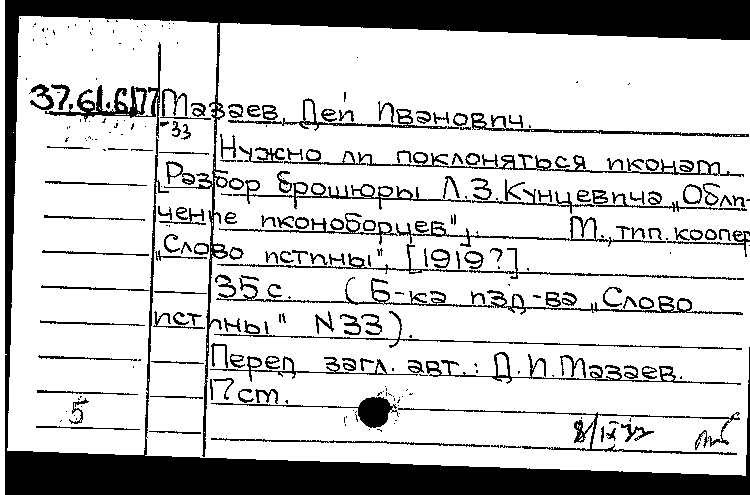 37.61.6.177 Мазаев, Дей Иванович.
-33
Нужно ли поклоняться иконам.
[Разбор брошюры Л.З.Кунцевича „Обли-
чение иконоборцев"]. М., тип. коопер.
„Слово истины", [1919?].
35 с. (Б-ка изд-ва „Слово
истины" N 33).
Перед загл. авт.: Д.И.Мазаев.
П ст.
5
8/IX 32